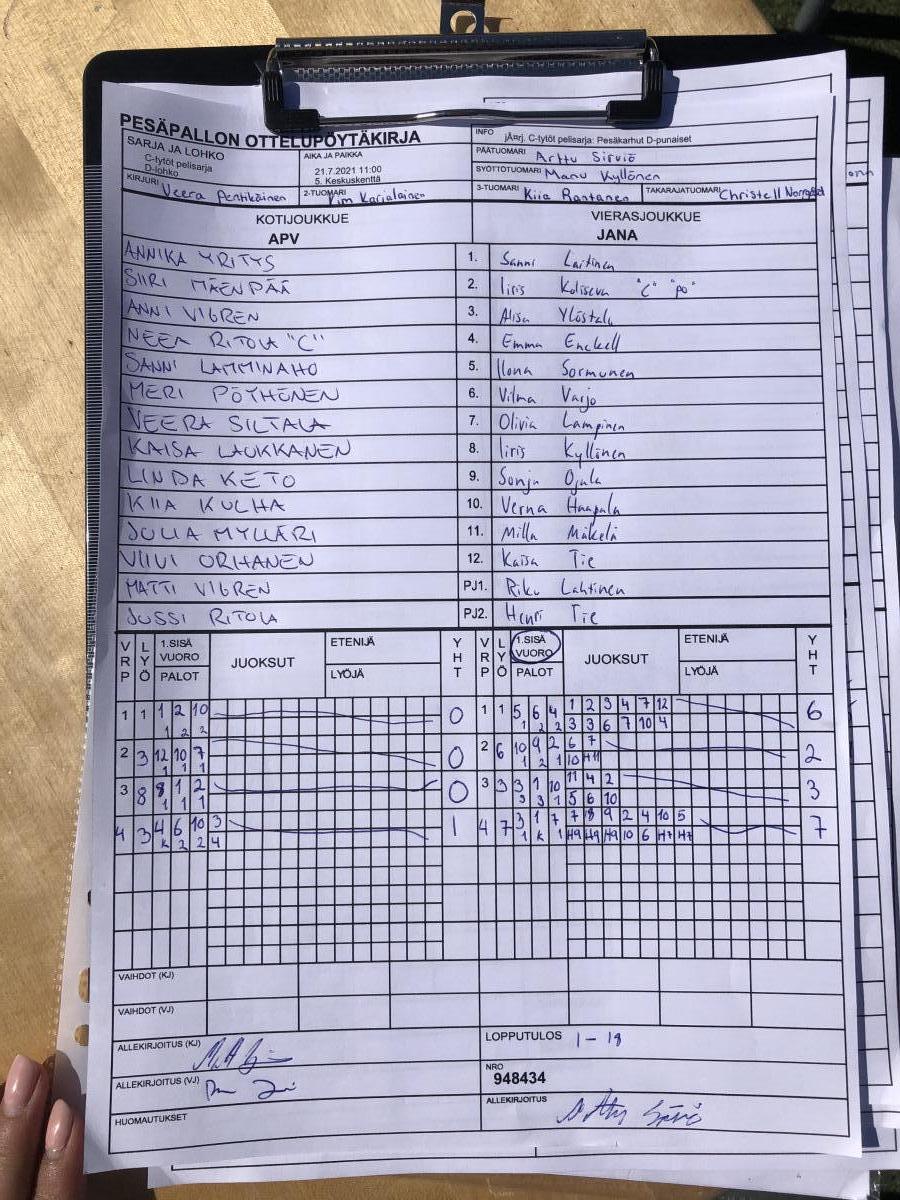 PESÄPALLON OTTELUPÖYTÄKIRJA
SARJA JA LOHKO
C-tytöt pelisarja
D-lohko
AIKA JA PAIKKA
21.7.2021 11:00
5. Keskuskenttä
INFO jÄ¤rj. C-tytöt pelisarja: Pesäkarhut D-punaiset
PÄÄTUOMARI Arttu Sirviö
SYÖTTÖTUOMARI Manu Kyllönen
KIRJURI Veera Pentikäinen 2-TUOMARI Kim Karjalainen 3-TUOMARI Kiia Rantanen TAKARAJATUOMARI Christell
KOTIJOUKKUE VIERASJOUKKUE
APV JANA
ANNIKA YRITYS 1. Sanni Laitinen
SIIRI MÄENPÄÄ 2. Iiris Koliseva "C" "PO"
ANNI VIGREN 3. Alisa Ylöstalo
NEEA RITOLA "C" 4. Emma Enckell
SANNI LAMMINAHO 5. Ilona Sormunen
MERI PÖYHÖNEN 6. Vilma Varjo
VEERA SILTALA 7. Olivia Lampinen
KAISA LAUKKANEN 8. Iiris Kyllönen
LINDA KETO 9. Sonja Ojala
KIIA KULHA 10. Verna Haapala
JULIA MYLLÄRI 11. Milla Mäkelä
VIIVI ORHANEN 12. Kaisa Tie
MATTI VIGREN PJ1. Riku Lahtinen
JUSSI RITOLA PJ2. Henri Tie
VRP LYÖ 1.SISÄ VUORO PALOT JUOKSUT ETENIJÄ LYÖJÄ YHT VRP LYÖ 1.SISÄ VUORO PALOT JUOKSUT ETENIJÄ LYÖJÄ YHT
1 1 1 2 10 0 1 1 5 6 4 1 2 3 4 7 12 6
1 2 2 1 2 2 3 3 6 7 10 4
2 3 12 10 7 0 2 6 10 9 2 6 7 2
1 1 1 1 2 1 10 H11
3 8 8 1 2 0 3 3 3 1 10 11 4 2 3
1 1 1 3 3 1 5 6 10
4 3 4 6 10 3 1 4 7 3 1 7 7 8 9 2 4 10 5 7
K 2 2 4 1 K 1 H9 H9 H9 10 6 H7 H7
VAIHDOT (KJ)
VAIHDOT (VJ)
ALLEKIRJOITUS (KJ) LOPPUTULOS 1 - 18
ALLEKIRJOITUS (VJ) NRO
948434
HUOMAUTUKSET ALLEKIRJOITUS